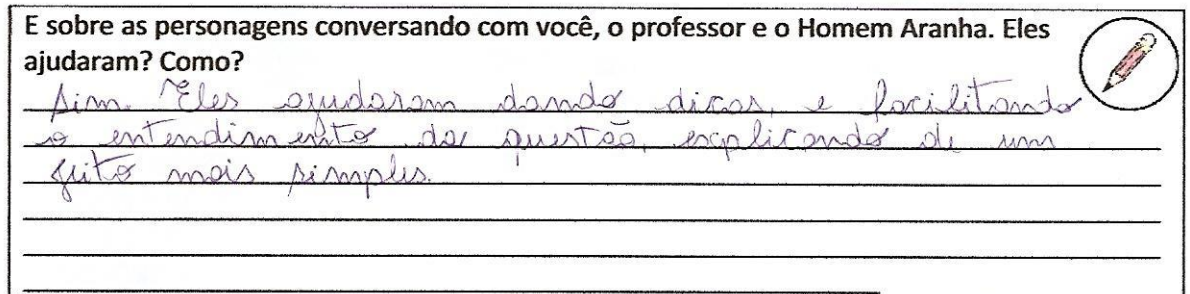 E sobre as personagens conversando com você, o professor e o Homem Aranha. Eles
ajudaram? Como?
Sim. Eles ajudaram dando dicas, e facilitando
o entendimento da questão, explicando de um
jeito mais simples.